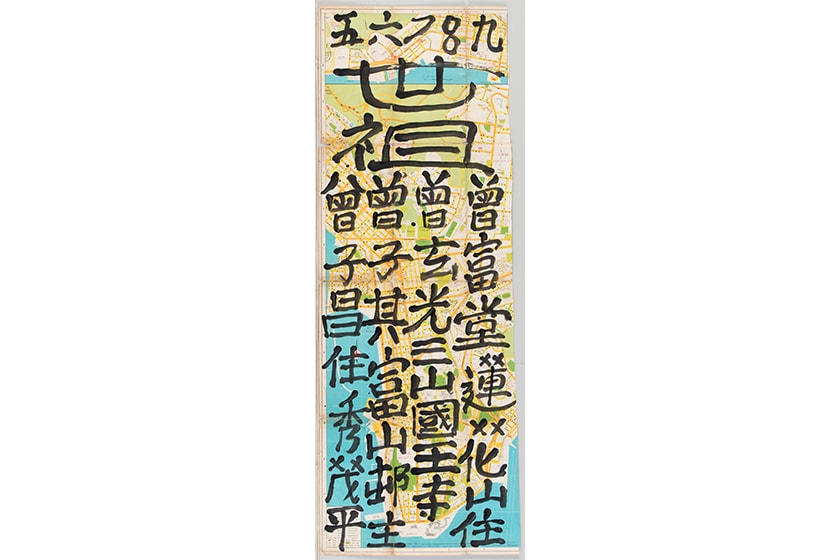 五六7８九
世祖
曾富堂蓮花山住
曾玄光三山國王寺
曾子其富山邨主
曾子昌住秀茂平